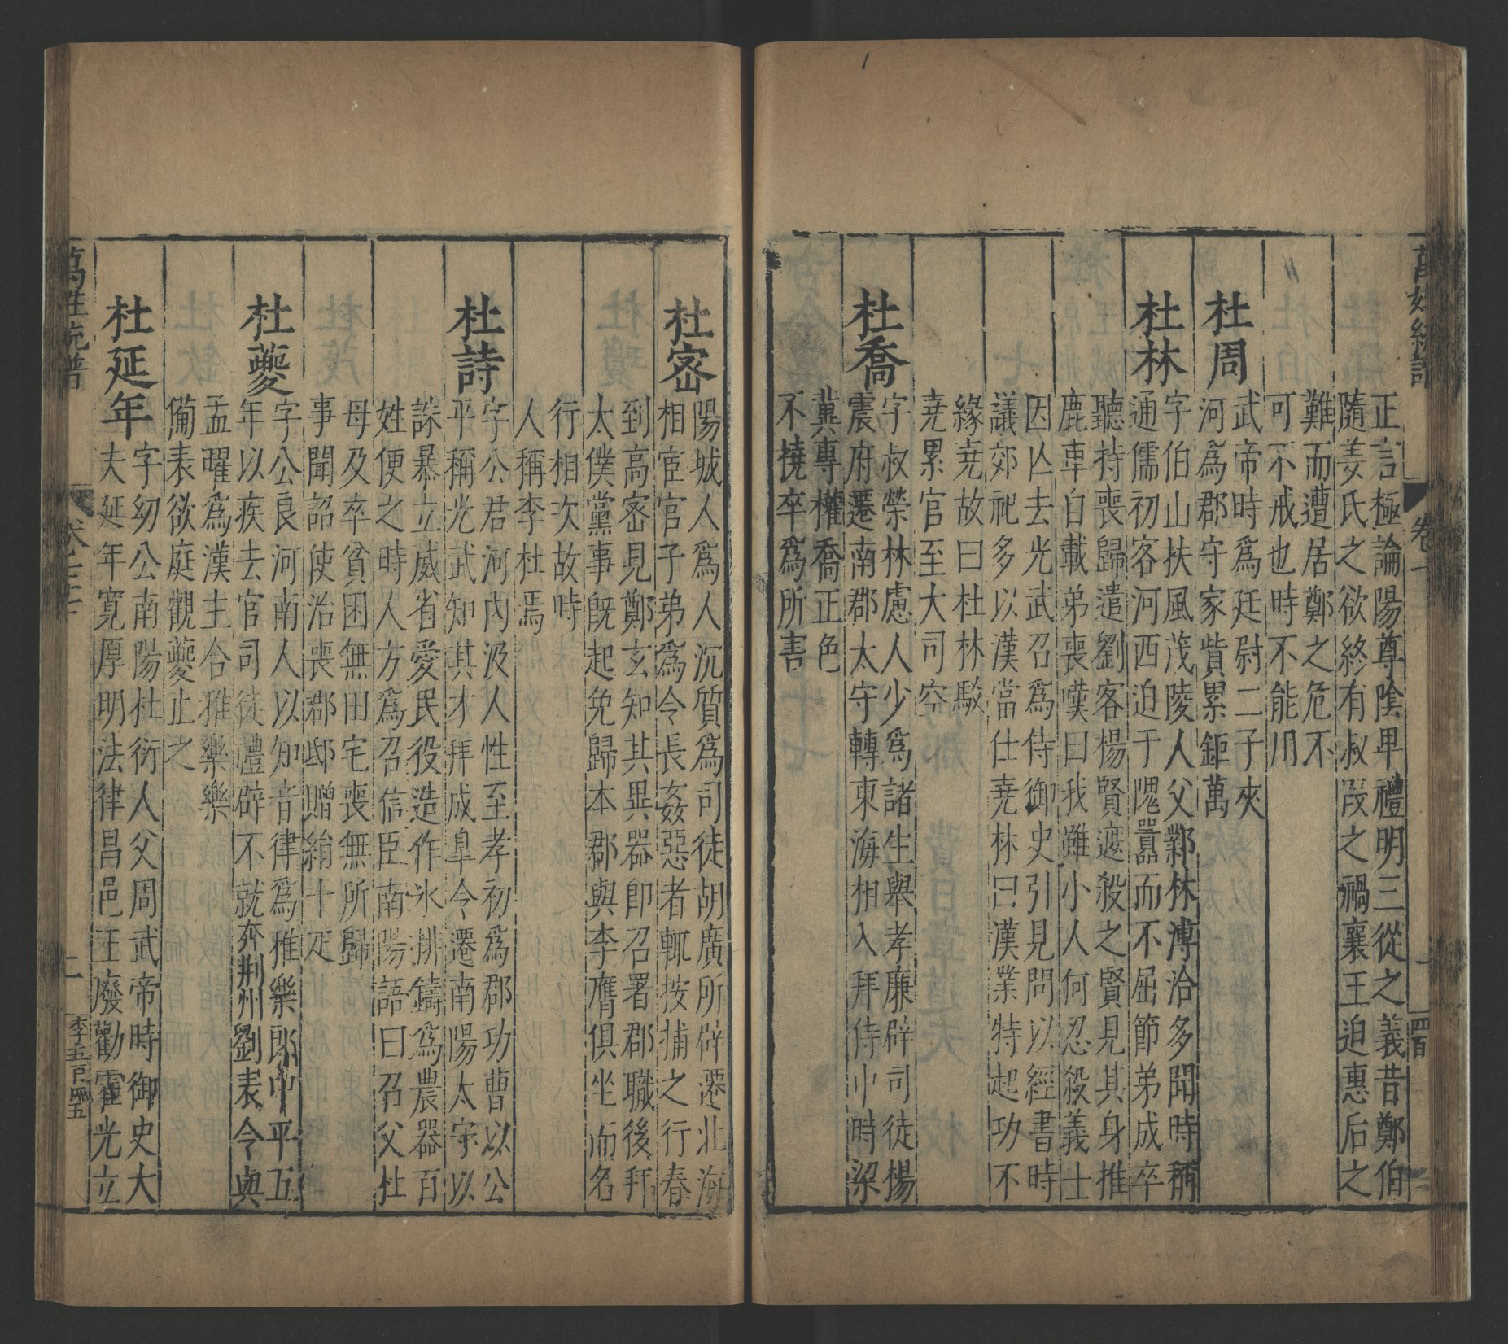 萬姓統譜
卷
正言極論陽尊陰卑禮明三從之義昔鄭伯
隨姜氏之欲終有叔段之禍襄王迫惠后之
難而遭居鄭之危不
可不戒也時不能用
杜周
武帝時爲廷尉二子夾
河爲郡守家貲累鉅萬
杜林
字伯山扶風茂陵人父鄴林溥洽多聞時稱
通儒初客河西迫于隗囂而不屈節弟成卒
聽持喪歸遣劉客楊賢遮殺之賢見其身推
鹿車自載弟喪嘆曰我雖小人何忍殺義士
因亾去光武召爲侍御史引見問以經書時
議郊祀多以漢當仕堯林曰漢業特起功不
緣堯故曰杜林駮
堯累官至大司空
杜喬
字叔榮林慮人少爲諸生舉孝廉辟司徒楊
震府遷南郡太守轉東海相入拜侍中時梁
冀專權喬正色
不撓卒爲所害
杜密
陽城人爲人沉質爲司徒胡廣所辟遷北海
相宦官子弟爲令長姦惡者輒按捕之行春
到高密見鄭玄知其異器卽召署郡職後拜
太僕黨事旣起免歸本郡與李膺俱坐而名
行相次故時
人稱李杜焉
杜詩
字公君河內汲人性至孝初爲郡功曹以公
平稱光武知其才拜成臯令遷南陽太守以
誅暴立威省愛民役造作水排鑄爲農器百
姓便之時人方爲召信臣南陽語曰召父杜
母及卒貧困無田宅喪無所歸
事聞詔使治喪郡邸贈絹十疋
杜夔
字公良河南人以知音律爲雅樂郎中平五
年以疾去官司徒禮辟不就奔荆州劉表令與
孟曜爲漢主合雅樂樂
備表欲庭觀夔止之
杜延年
字幼公南陽杜衍人父周武帝時御史大
夫延年寬厚明法律昌邑王廢勸霍光立
萬姓統譜
卷七十
二
李五百四五